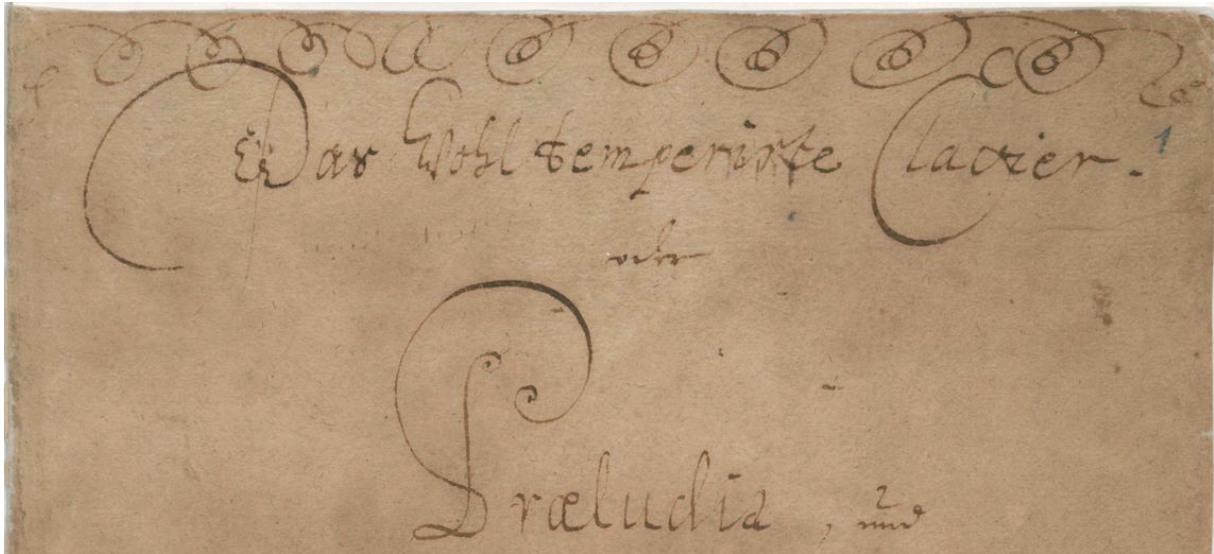 Das Wohltemperirte Clavier.
1
oder
Præludia, und